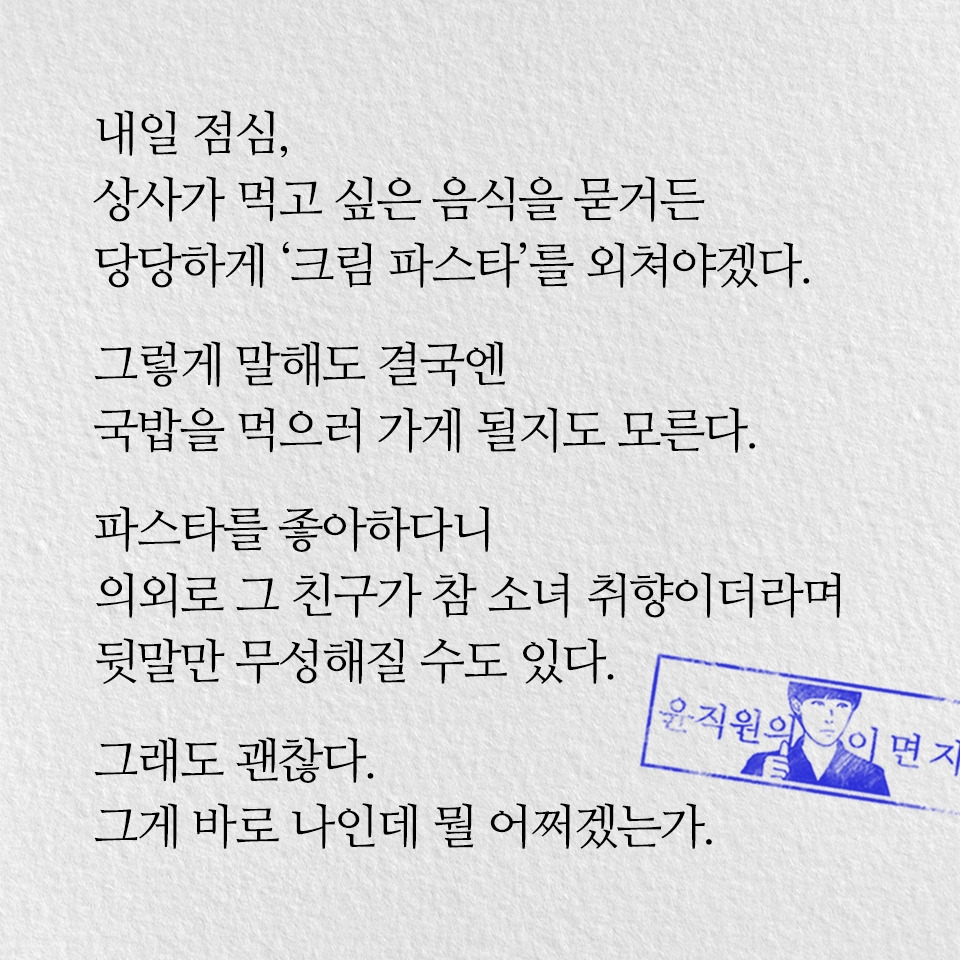 내일 점심,
상사가 먹고 싶은 음식을 묻거든
당당하게 ‘크림 파스타’를 외쳐야겠다.
그렇게 말해도 결국엔
국밥을 먹으러 가게 될지도 모른다.
파스타를 좋아하다니
의외로 그 친구가 참 소녀 취향이더라며
뒷말만 무성해질 수도 있다.
그래도 괜찮다.
그게 바로 나인데 뭘 어쩌겠는가.
윤직원의 이면지